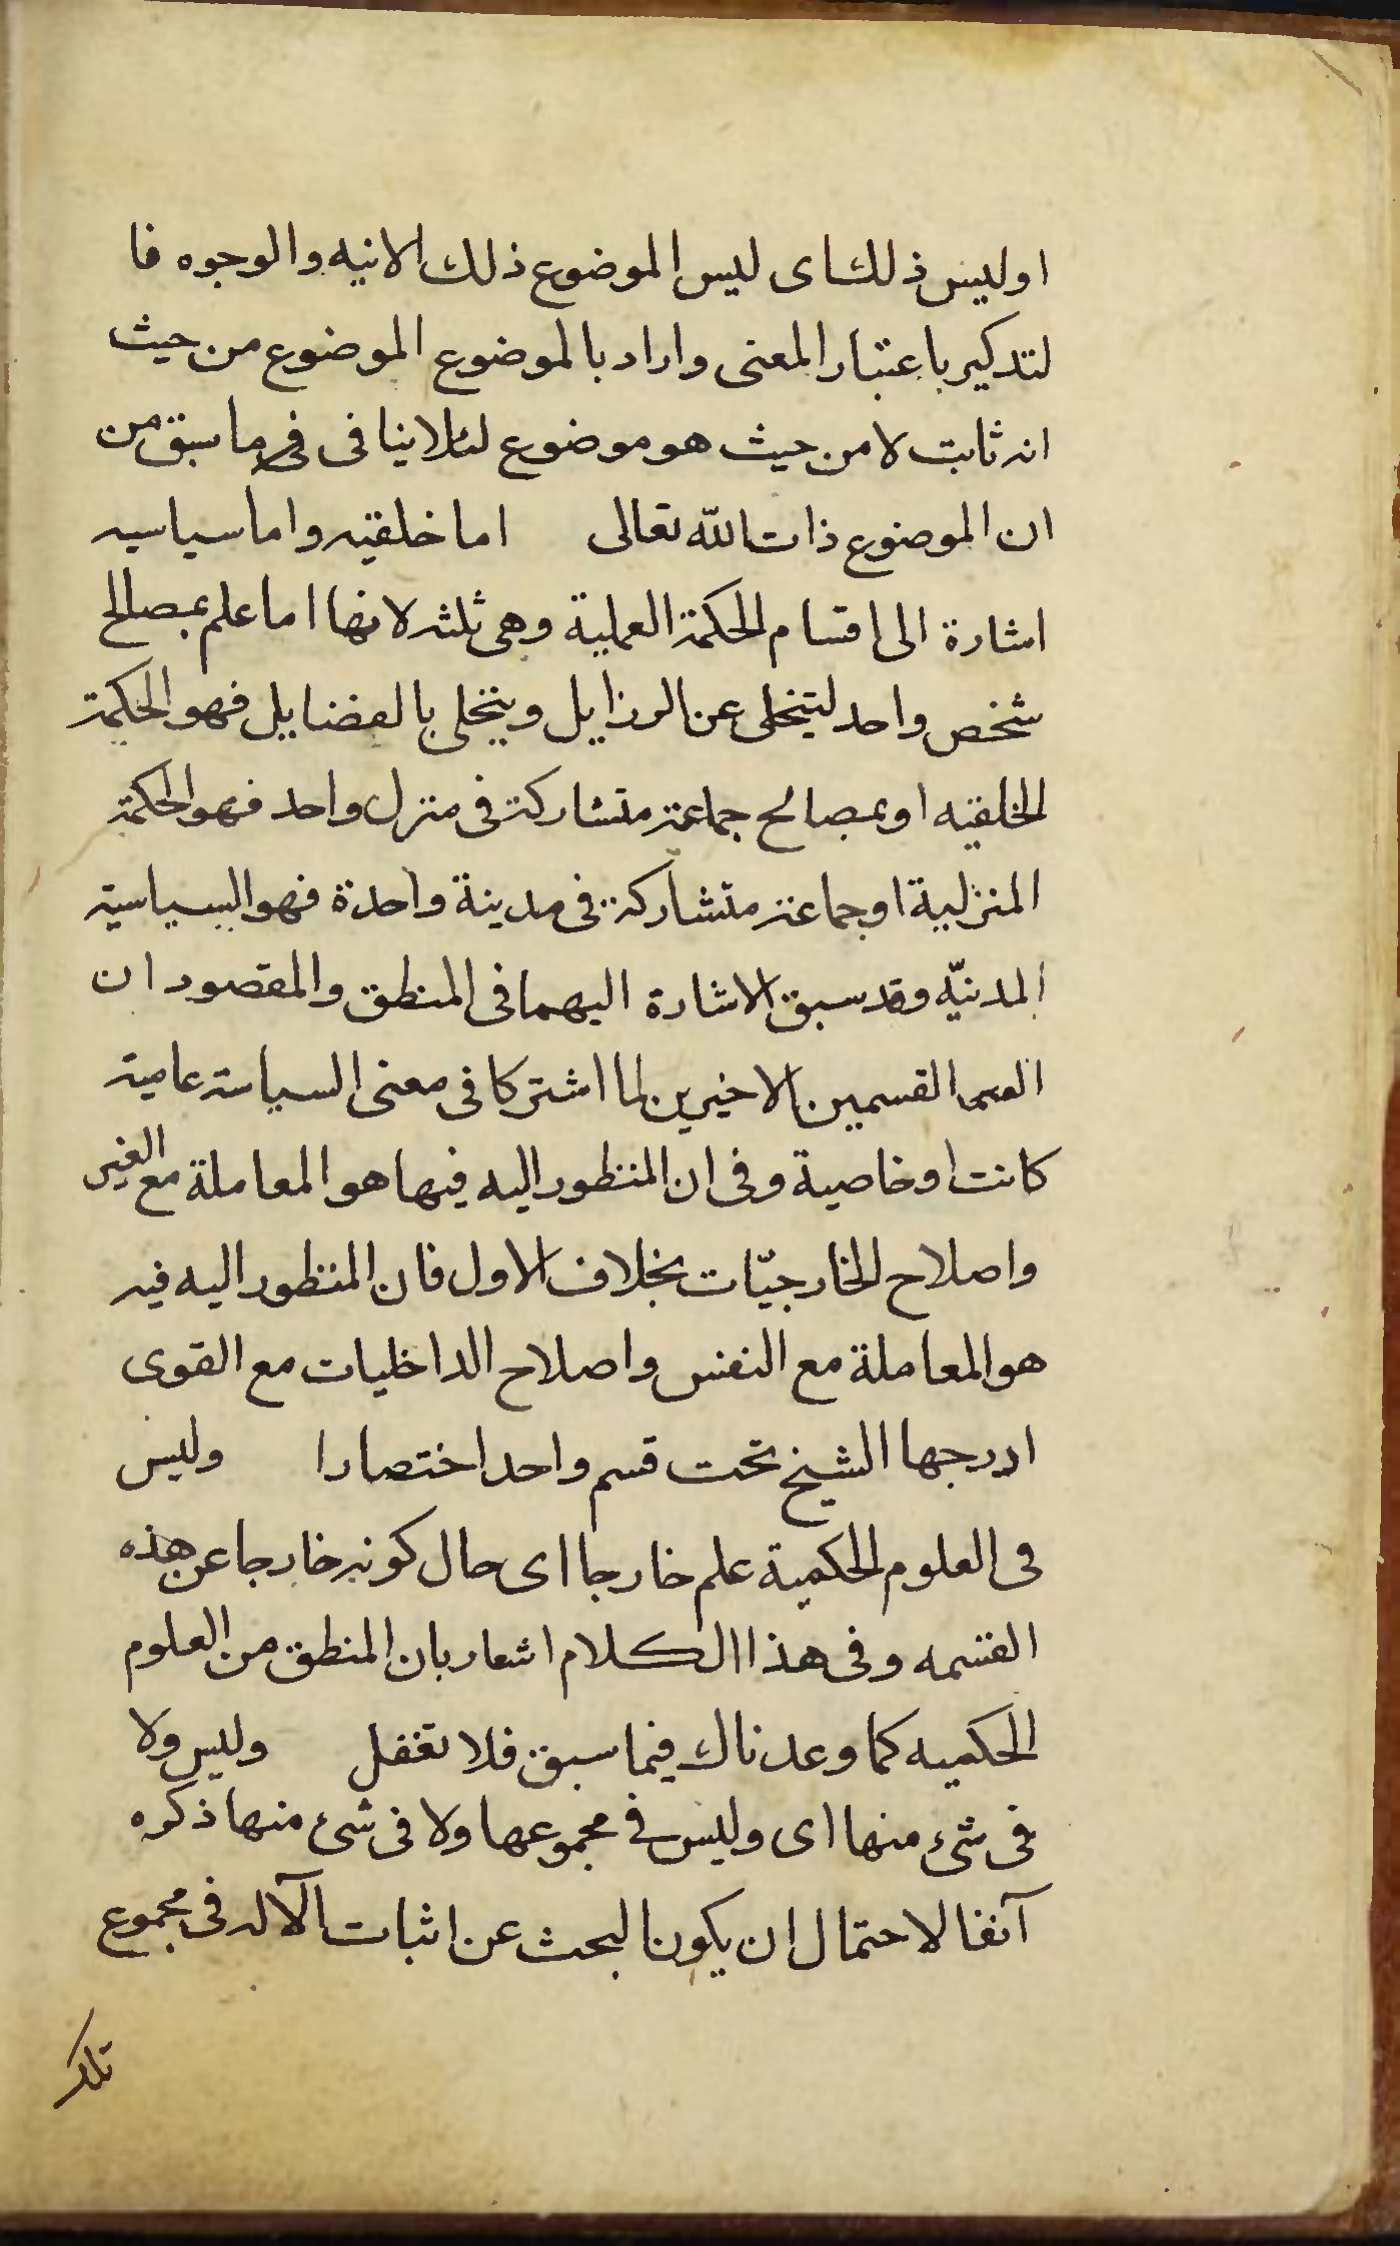 اوليس ذلك اى ليس الموضوع ذلك الانيه والوجوه فا
لتدكير باعتبار المعنى واراد بالموضوع الموضوع من حيث
انه ثابت لا من حيث هو موضوع لئلا ينافى فى ما سبق من
ان الموضوع ذات الله تعالى اما خلقيه واما سياسيه
اشارة الى اقسام الحكمة العملية وهى ثلثه لانها اما علم بمصالح
شخص واحد ليتخلى عن الرزايل ويتحلى بالفضايل فهو الحكمة
الخلقيه او بمصالح جماعة متشاركة فى منزل واحد فهو الحكمة
المنزلية او جماعة متشاركة فى مدينة واحدة فهو السياسية
المدنيّه وقد سبق الاشارة اليهما فى المنطق والمقصود ان
القسمين الاخيرين لما اشتركا فى معنى السياسة عامية
كانت او خاصية وفى ان المنظور اليه فيها هو المعاملة مع الغير
واصلاح الخارجيّات بخلاف الاول فان المنظور اليه فيه
هو المعاملة مع النفس واصلاح الداخليات مع القوى
ادرجها الشيخ تحت قسم واحد اختصارا وليس
فى العلوم الحكمية علم خارجا اى حال كونه خارجا عن هذه
القسمه وفى هذا الكلام اشعار بان المنطق من العلوم
الحكميه كما وعدناك فيما سبق فلا تغفل وليس ولا
فى شئ منها اى وليس فى مجموعها ولا فى شئ منها ذكره
آنفا لاحتمال ان يكون البحث عن اثبات الآله فى مجموع
تلك